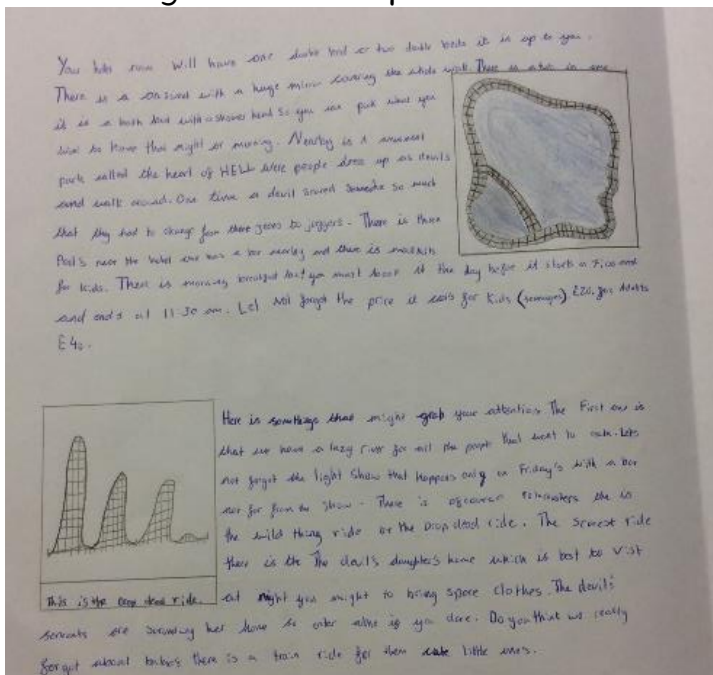 You hotel room will have one double bed or two double beds it is up to you.
There is a onsued with a huge mirror covering the whole wall. There is also in one
it is a bath but with a shower head so you can pick what you
want to have that night or morning. Nearby is a amusment
park called the heart of HELL were people dress up as devils
and walk around. One time a devil scared someone so much
that they had to change from there jeans to joggers. There is three
Pool's near the hotel one has a bar nearby and there is
for kids. There is morning breakfast but you must book it the day before it starts a
and ends at 11:30 am. Let not forget the price it is for kids (teenagers) £20, for Adults
£40.
Here is somethings that might grab your attention. The First one is
that we have a lazy river for all the people that want to relax. Lets
not forget the light show that happens only on Friday's with a bar
not far from the show. There is ofcourse the is
the wild thing ride or the Drop dead ride. The scarest ride
there is the The devil's daughter's home which is best too visit
at night you might to bring spare clothes. The devil's
servants are surounding her home so enter alone if you dare. Do you think we really
forgot about babies there is a train ride for them cute little one's.
This is the Drop dead ride.